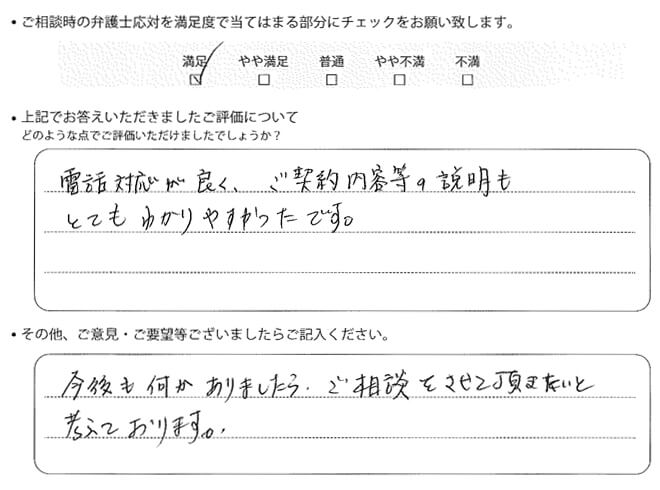 ・ご相談時の弁護士応対を満足度で当てはまる部分にチェックをお願い致します。
満足 やや満足 普通 やや不満 不満
・上記でお答えいただきましたご評価について
どのような点でご評価いただけましたでしょうか？
電話対応が良く、ご契約内容等の説明も
とてもわかりやすかったです。
・その他、ご意見・ご要望等ございましたらご記入ください。
今後も何かありましたら、ご相談をさせて頂きたいと
考えております。